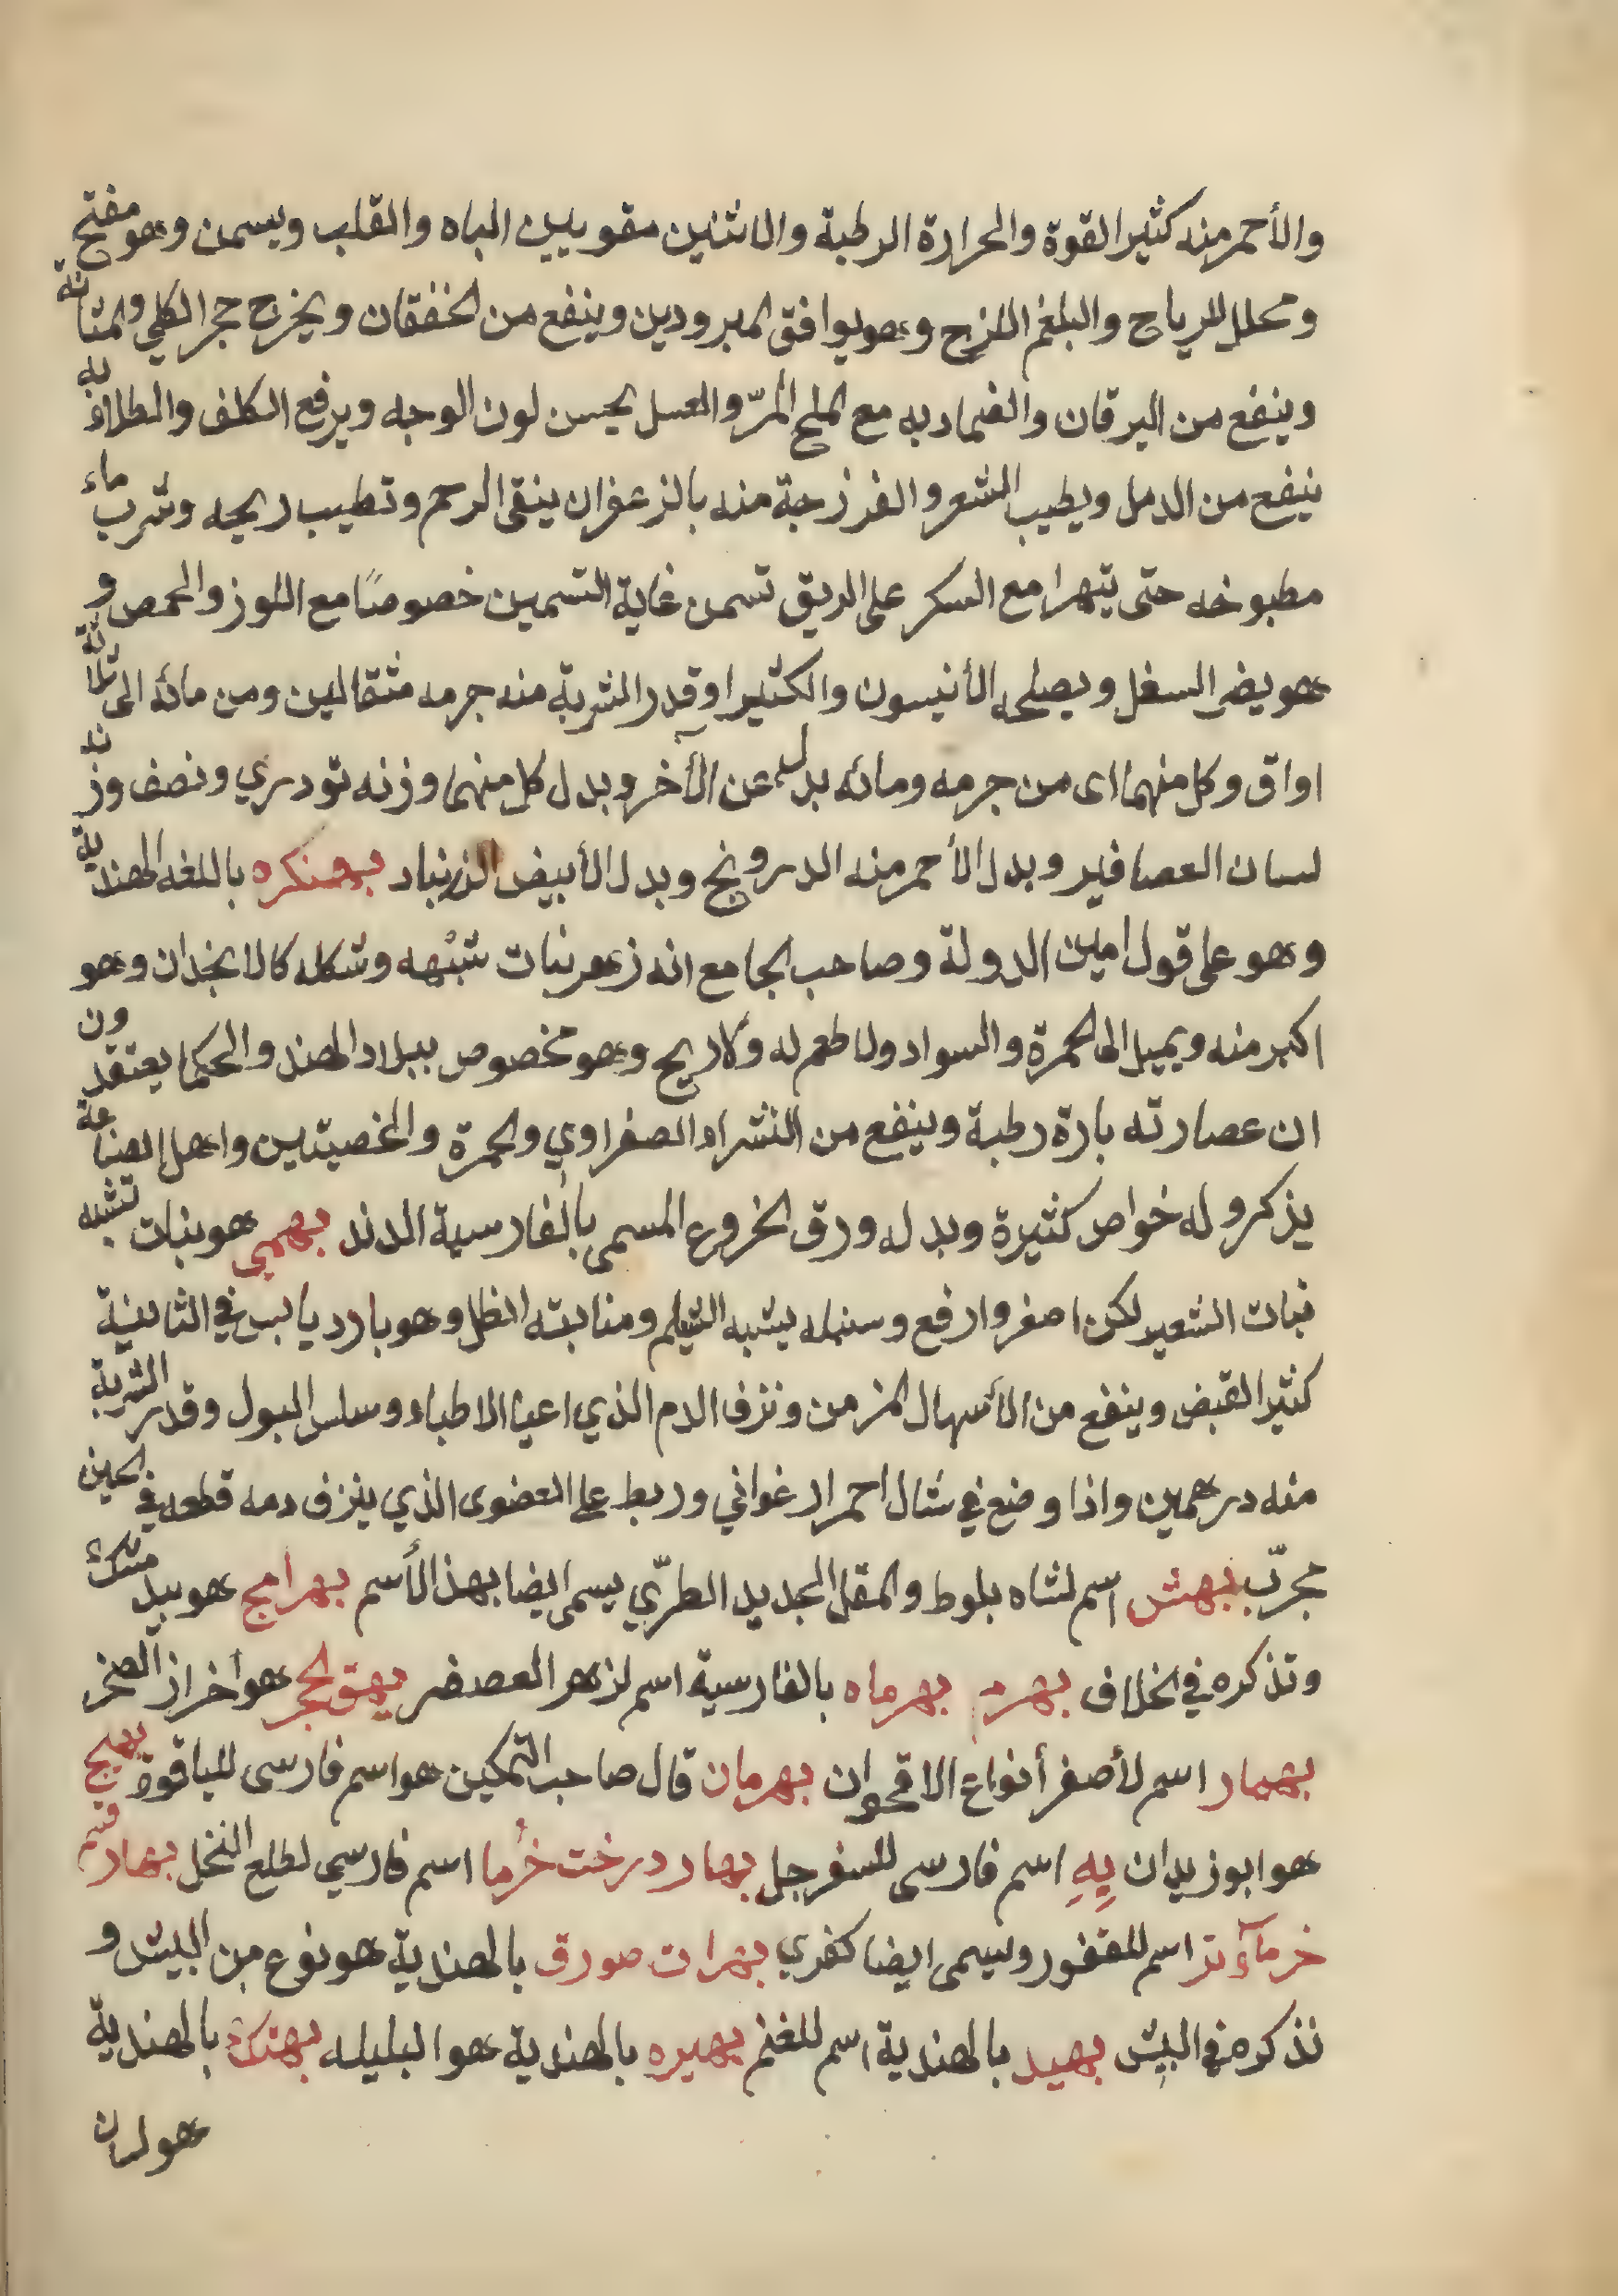 والأحمر منه كثير القوة والحرارة الرطبة والاثنين مقويين الباه والقلب ويسمن وهو مفتح
ومحلل للرياح والبلغم اللزج وهو يوافق المبرودين وينفع من الخفقان ويخرج حجر الكلي والمثانة
وينفع من اليرقان والضماد به مع الملح المرّ والعسل يحسن لون الوجه ويرفع الكلف والطلاء به
ينفع من الدمل ويطيب الشعر والفرزجة منه بالزعفران ينقى الرحم وتطيب ريحه وشرب ماء
مطبوخه حتى يتهرا مع السكر على الريق تسمن غاية التسمين خصوصًا مع اللوز والحمص و
هو يضر السفل ويصلحه الأنيسون والكثيرا وقدر الشربة منه جرمه مثقالين ومن مائه الى ثلاثة
اواق وكل منهما اى من جرمه ومائه بدل عن الآخر وبدل كل منهما وزنه تودري ونصف وزنه
لسان العصافير وبدل الأحمر منه الدرونج وبدل الأبيض الزرنباد بهنكره باللغه الهندية
وهو على قول امين الدولة وصاحب الجامع انه زهر نبات شبهه وشكله كالانجذان وهو
اكبر منه ويميل الى الحمرة والسواد ولا طعم له ولا ريح وهو مخصوص ببلاد الهند والحكما يعتقدون
ان عصارته بارة رطبة وينفع من الشراء الصفراوي والحمرة والخصيتين واهل الصناعة
يذكرو له خواص كثيرة وبدله ورق الخروع المسمى بالفارسية الدند بهمى هو نبات تشبه
نبات الشعير لكن اصفر وارفع وسنبله يشبه الشيلم ومنابته الظل وهو بارد يابس في الثانية
كثير القبض وينفع من الأسهال المزمن ونزف الدم الذي اعيا الاطباء وسلس البول وقدر الشربة
منه درهمين واذا وضع في شال احمر ارغواني وربط على العضوى الذي ينزف دمه قطعه في الحين
مجرّب بهش اسم لشاه بلوط والمقل الجديد الطرّي يسمى ايضا بهذ الأسم بهرامج هو بيد مشك
وتذكره في الخلاف بهرم بهرماه بالفارسية اسم لزهر العصفر بهق الحجر هو اخراز الصخر
بهمار اسم لأصفر أنواع الاقحوان بهرمان قال صاحب التمكين هو اسم فارسى للياقوة بهيج
هو ابوزيدان بِهِ اسم فارسى للسفرجل بهار درخت خُرما اسم فارسي لطلع النخل بهار قسم
خرماؤنز اسم للقفور وسيمى ايضا كفري بهرات صورق بالهندية هو نوع من البيش و
نذكره في البيش بهيد بالهندية اسم للغنم بهيره بالهندية هو البليله بهتك بالهندية
هو لسان